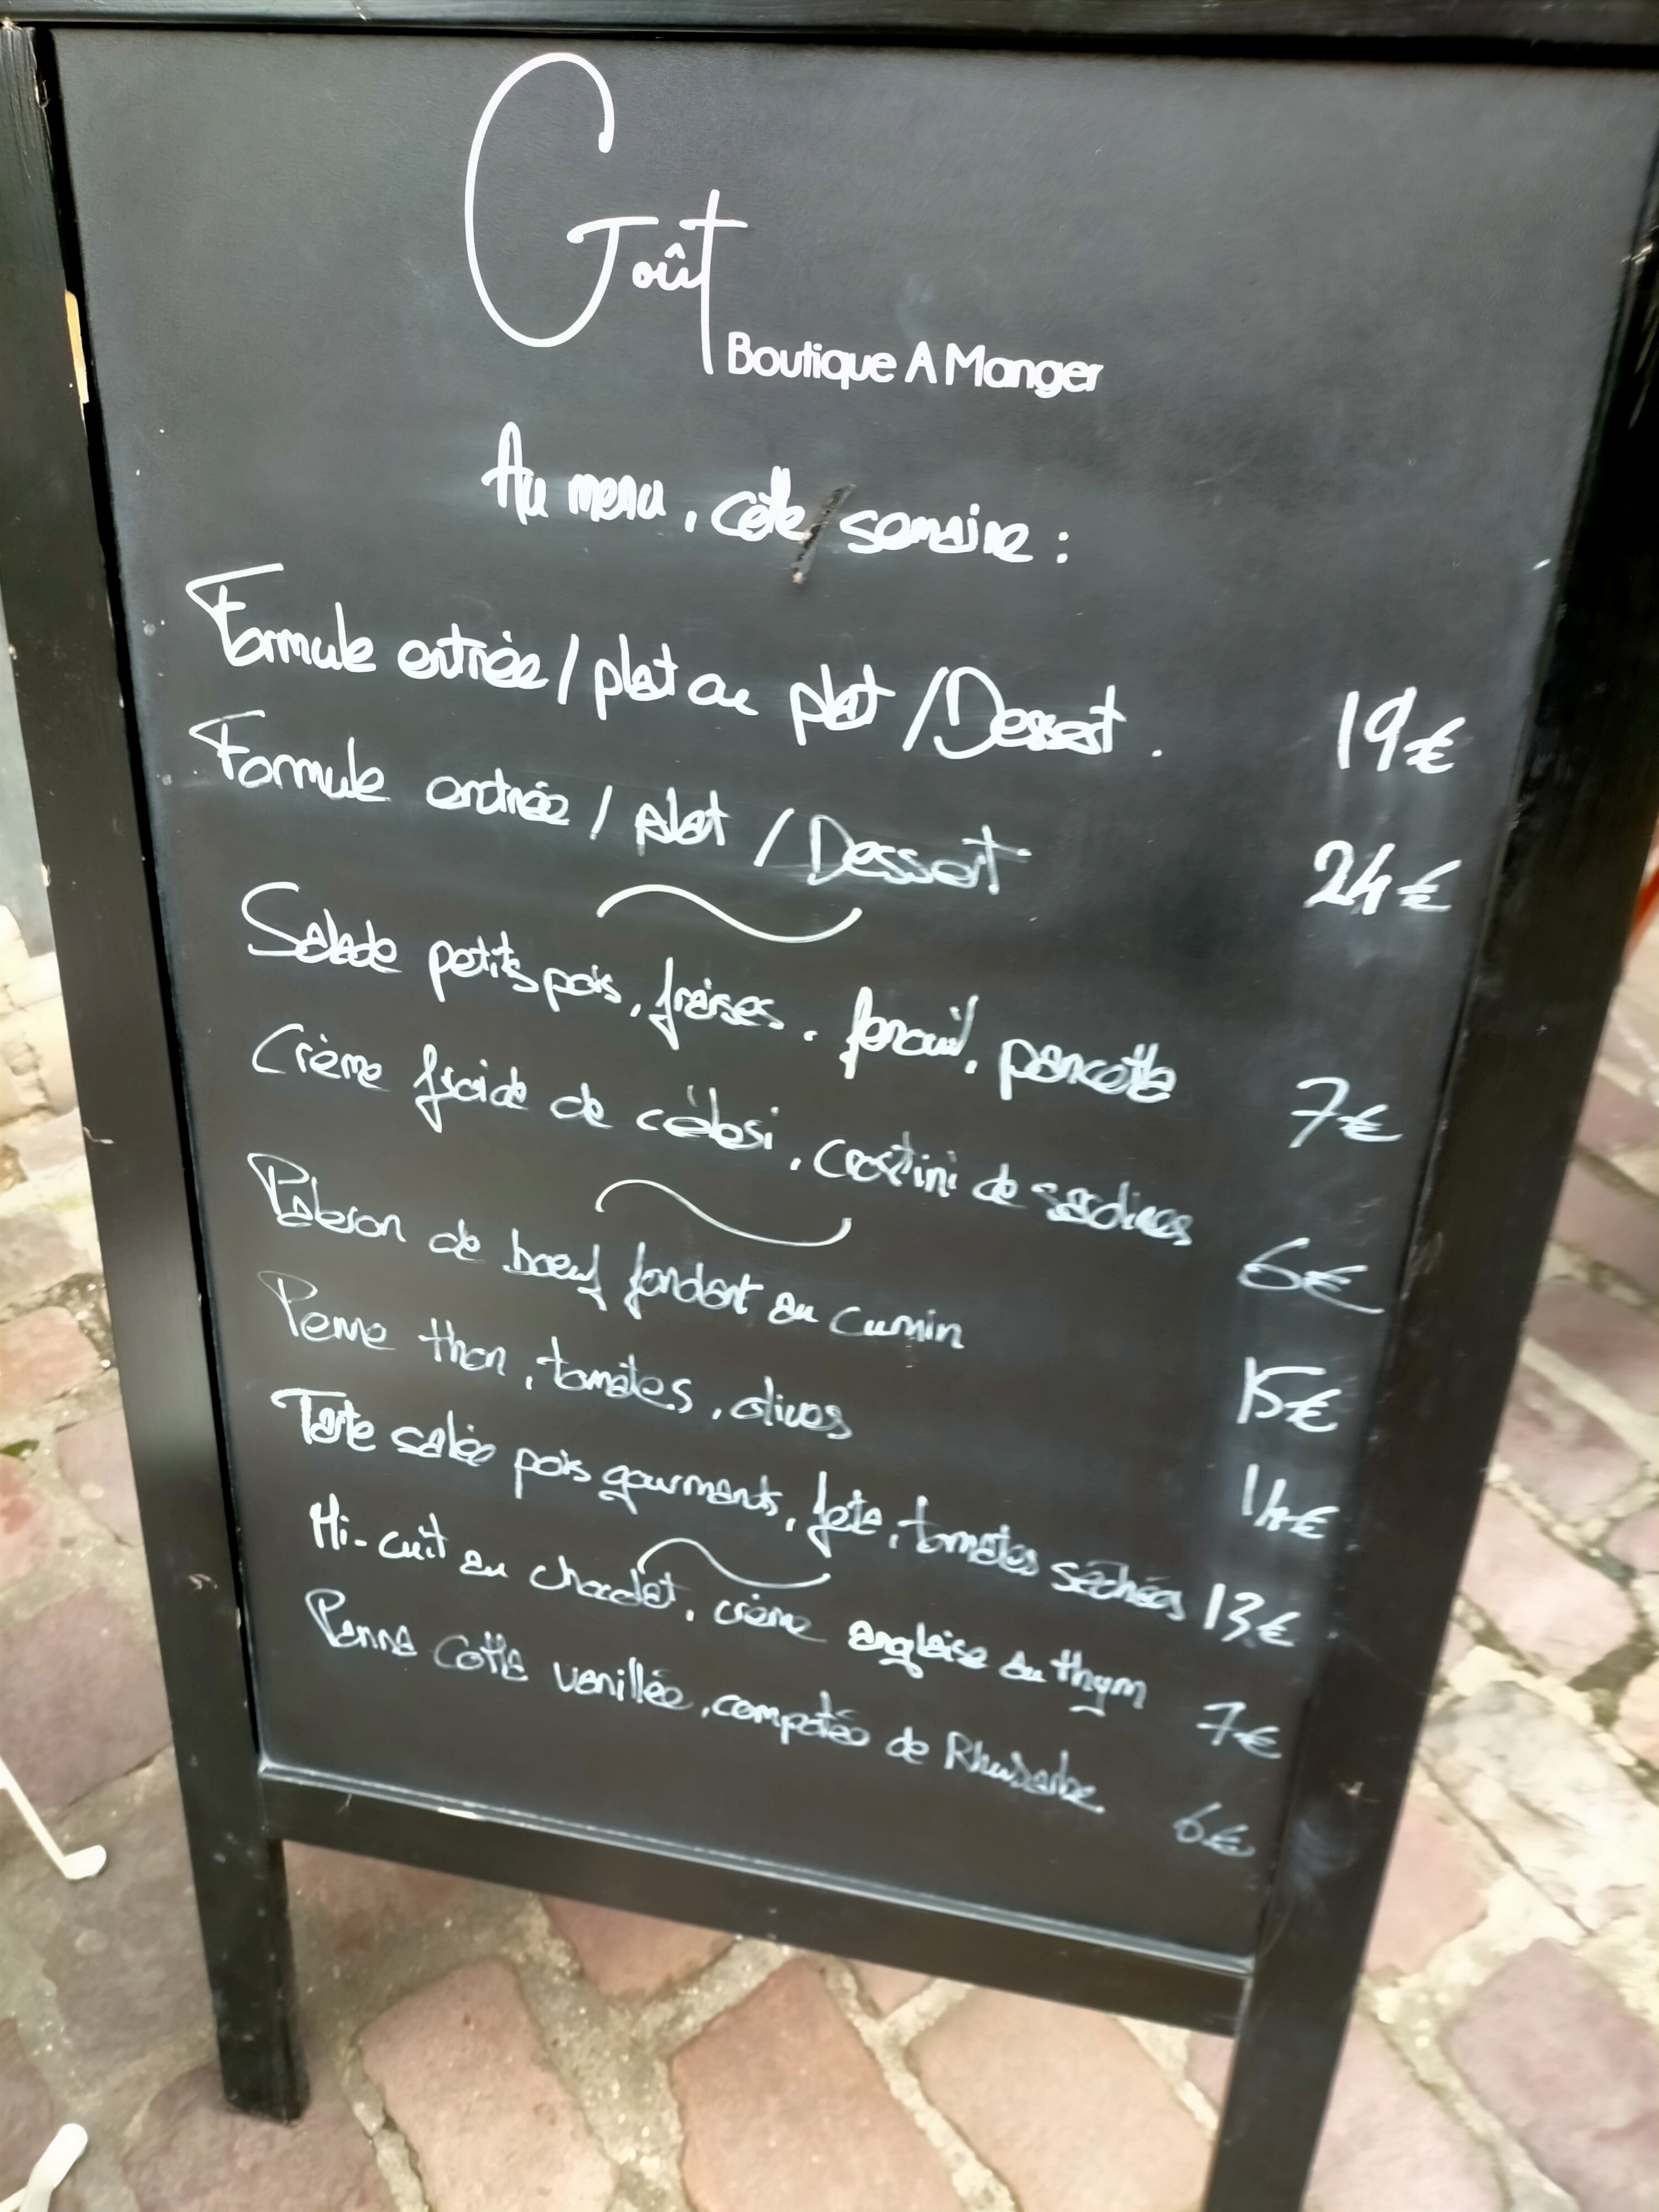 Goût
Boutique A Manger
Au menu, cette semaine :
Formule entrée / plat ou plat / Dessert. 19€
Formule entrée / plat / Dessert 24€
Salade petits pois, fraises, fenouil, pancetta 7€
Crème froide de céleri, crostini de sardines 6€
Paleron de boeuf fondant au cumin 15€
Penne thon, tomates, olives 14€
Tarte salée pois gourmants, feta, tomates séchées 13€
Mi-cuit au chocolat, crème anglaise au thym 7€
Panna Cotta vanillée, compotée de Rhubarbe 6€